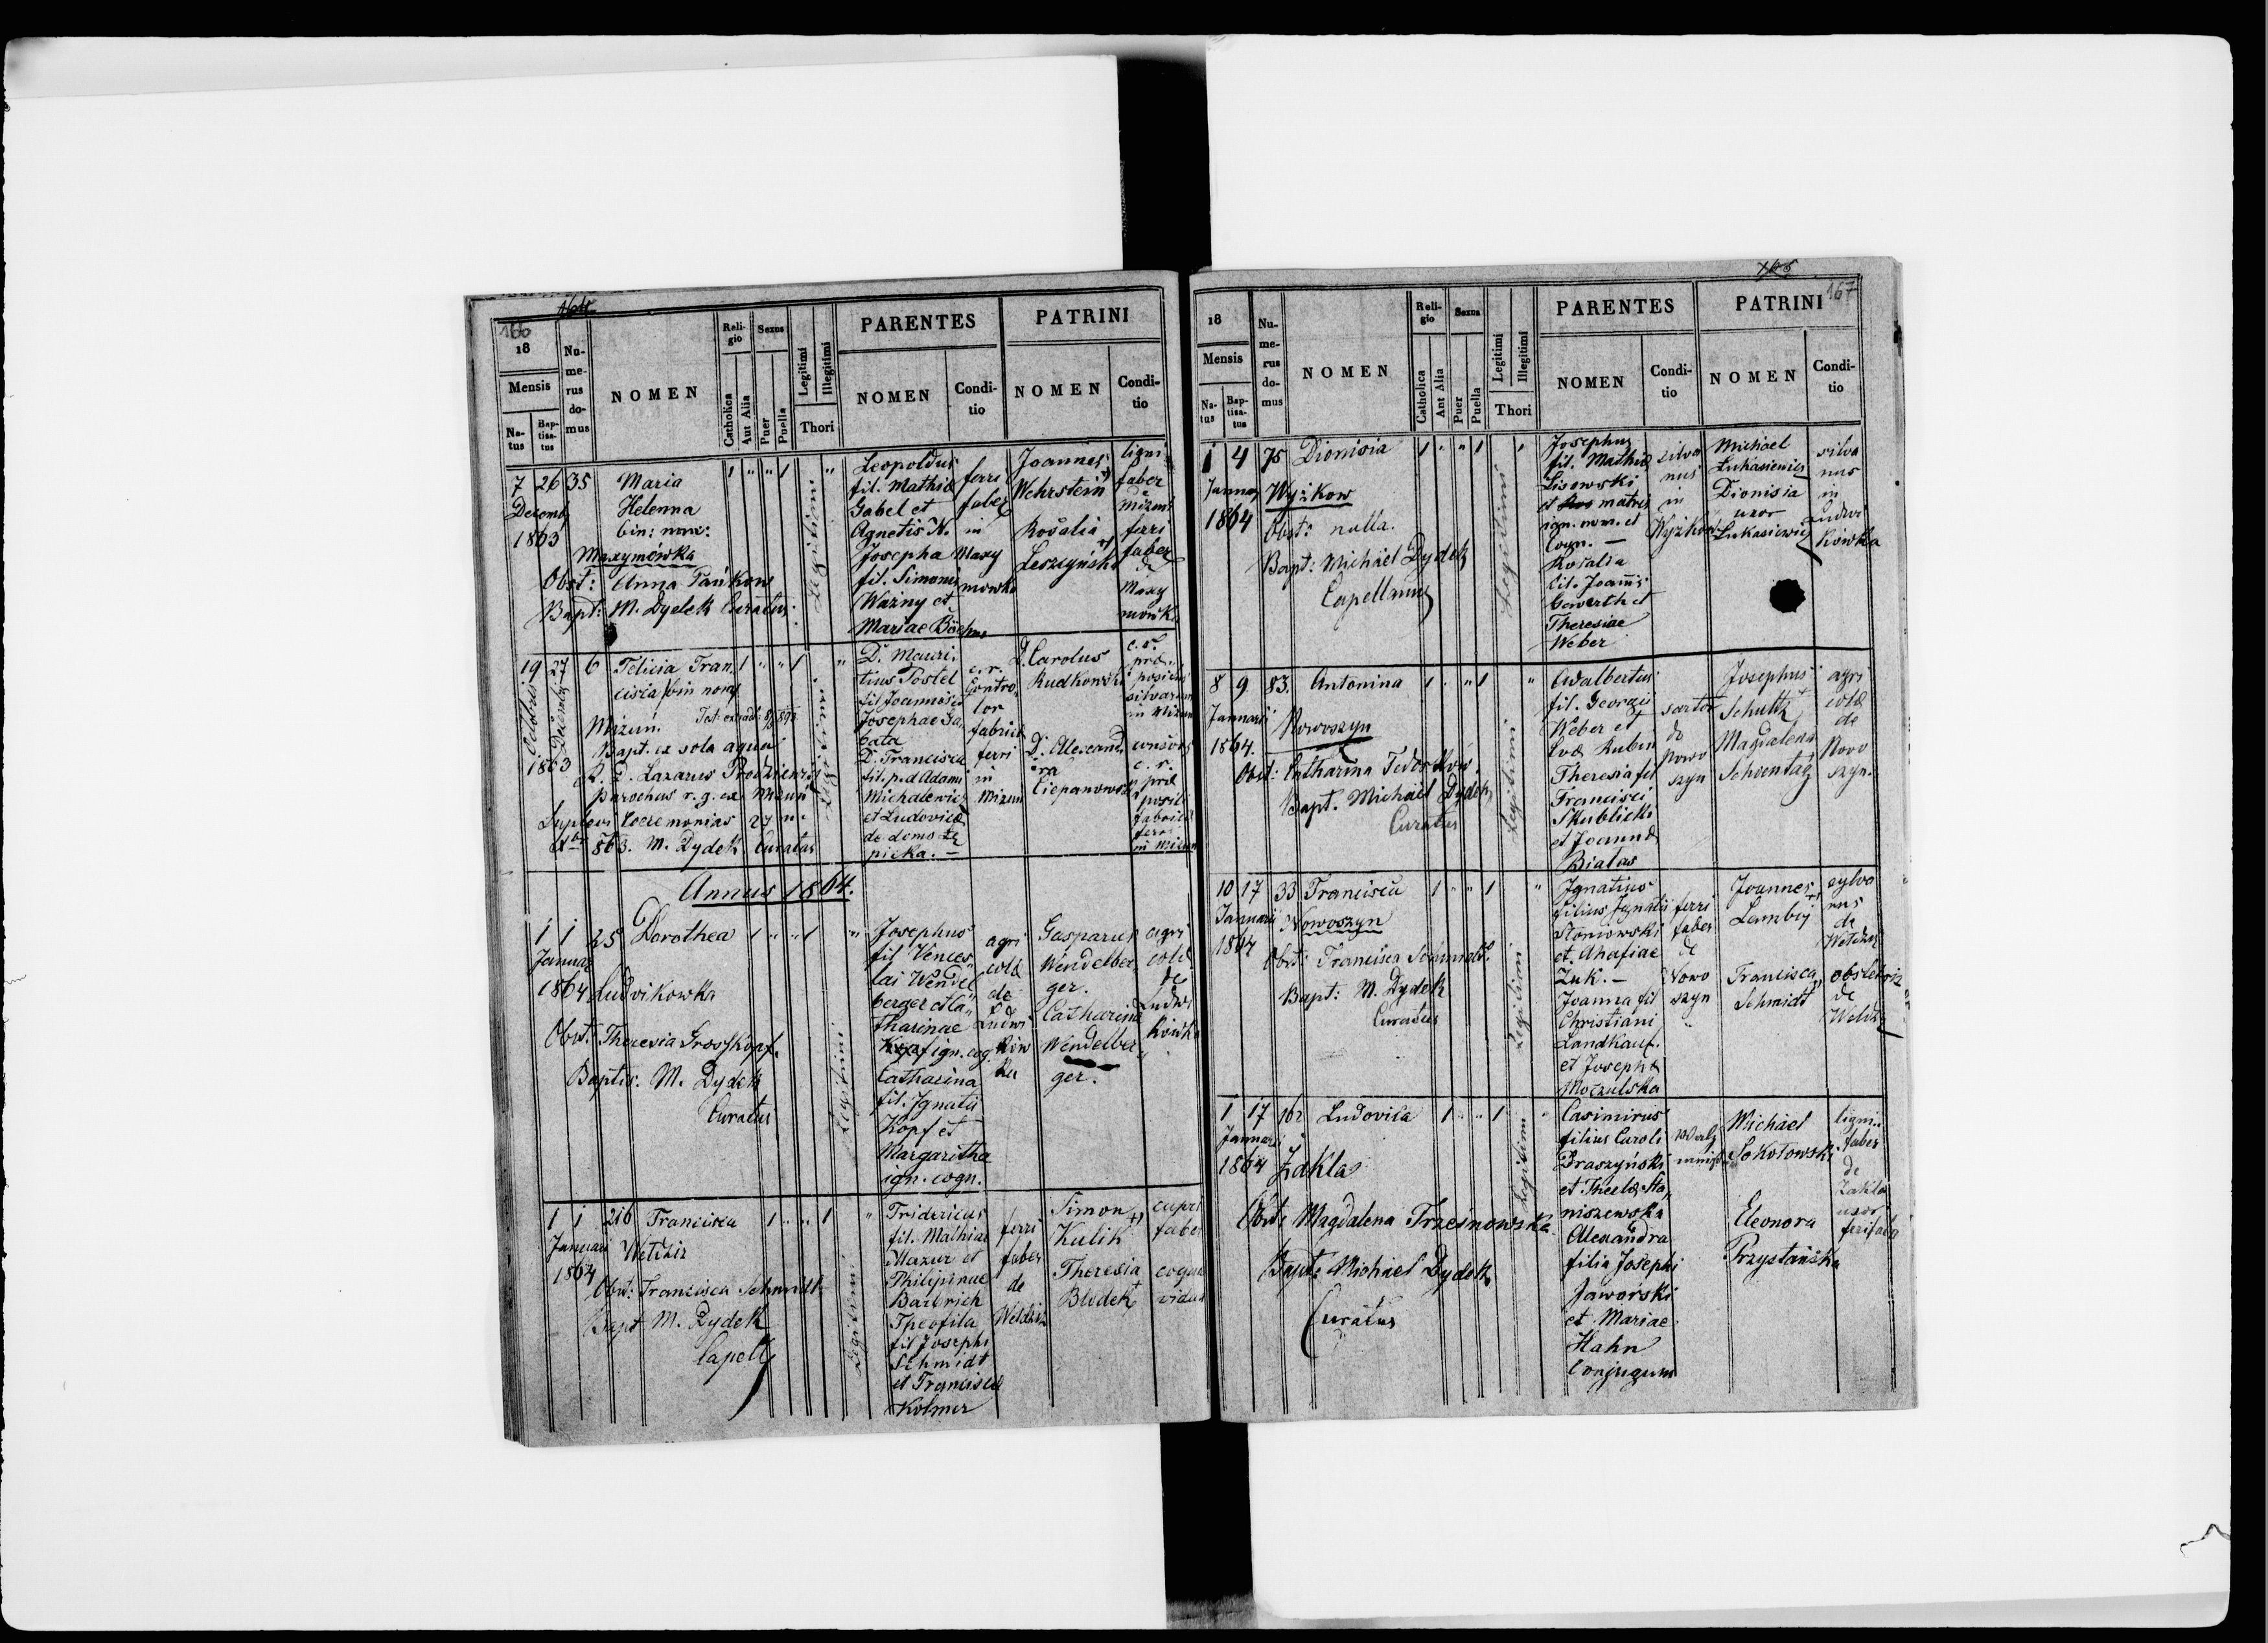 166
164
18
Mensis
Na-
tus
Bap-
tisa-
tus
Nu-
me-
rus
do-
mus
NOMEN
Reli-
gio
Catholica
Aut Alia
Sexus
Puer
Puella
Legitimi
Illegitimi
Thori
PARENTES
NOMEN
Condi-
tio
PATRINI
NOMEN
Condi-
tio
7 26 35 Maria 1 " " 1 "
Decemb
1863
Helenna
bin: nom:
Maxymowka
Obst: Anna Pańkow
Bapt: M. Dydek Curatus
Legitimi
Leopoldus
fil. Mathiæ
Gabel et
Agnetis N.
Josepha
fil. Simonis
Ważny et
Mariae Böehm
ferri
faber
in
Maxy
mowka
Joannes
Wehrstein
Rosalia
Leszczyńska
ligni
faber
Mizuń
ferri
faber
de
Maxy
mowka
19 27 6 Felicia Fran 1 " " 1 "
Octobris
Decembris
1863
cisca bin nom
Mizuń
Bapt. ex sola aqua
R. D. Lazarus
parochus r. g. ex Mizuń
Suplevi Coeremonias 27
Xbr 863. M. Dydek Curatus
Legitimi
D. Mauri
tius Postel
fil Joannis et
Josephae Ga
bata
D. Francisca
fil. p. d Adami
Michalewicz
et Ludovicæ
de domo Rze
picka. —
c. r.
Contro
lor
fabricæ
ferri
in
Mizuń
D. Carolus
Rudkowski
D. Alexand
ra
Ciepanowska
præ
positus
silvarum
in Mizuń
consors
c. r.
præ
posit
fabricæ
ferri
in Mizuń
Annus 1864.
1 1 25 Dorothea 1 " " 1 "
Januar
1864 Ludvikowka
Obst. Theresia Grosskopf.
Baptis. M. Dydek
Curatus
Legitimi
Josephus
fil Vences
lai Wendel
berger et Ca
tharinae
ign. cog.
Catharina
fil. Ignatii
Kopf et
Margaritha
ign. cogn.
agri
cola
de
Ludwi
kow
ka
Gasparus
Wendelber
ger.
Catharina
Wendelber
ger.
agri
cola
de
Ludwi
kowka
1 1 216 Francisca 1 " " 1 "
Januari
1864
Wełdzirz
Obst: Francisca Schmidt
Bapt M. Dydek
Capell
Legitimi
Fridericus
fil. Mathiae
Mazur et
Philipinae
Barbrich
Theofila
fil Josephi
Schmidt
et Franciscæ
Kolmer
ferri
faber
de
Weldzirz
Simon
Kulik
Theresia
Blodek
cupri
faber
coqua
vidua
167
165
18
Mensis
Na-
tus
Bap-
tisa-
tus
Nu-
me-
rus
do-
mus
NOMEN
Reli-
gio
Catholica
Aut Alia
Sexus
Puer
Puella
Legitimi
Illegitimi
Thori
PARENTES
NOMEN
Condi-
tio
PATRINI
NOMEN
Condi-
tio
1 4 75 Dionisia 1 " " 1 "
Januar
1864
Wyżkow
Obst: nulla.
Bapt: Michael Dydek
Capellanus
Legitimi
Josephus
fil. Mathiæ
Lisowski
et matris
ign. nom. et
Cogn. —
Rosalia
fil. Joannis
Gewerth et
Theresiae
Weber
silva
nus
in
Wyżkow
Michael
Łukasiewicz
Dionisia
uxor
Łukasiewicz
silva
nus
in
Ludwi
kowka
8 9 83. Antonina 1 " " 1 "
Januarii
1864.
Nowoszyn
Obst: Catharina Fedorkow.
Bapt. Michael Dydek
Curatus
Legitimi
Adalbertus
fil. Georgii
Weber et
Evæ Rubin
Theresia fil
Francisci
Skublicki
et Joannæ
Białas
sartor
de
Nowo
szyn
Josephus
Schultz
Magdalena
Schoentag
agri
cola
de
Novo
szyn.
10 17 33 Francisca 1 " " 1 "
Januarii
1864
Nowoszyn
Obst: Francisca Schmidt
Bapt: M. Dydek
Curatus
Legitimi
Ignatius
filius Ignatii
Stoniowski
et Ahafiae
Zuk. —
Joanna fil
Christiani
Landkauf.
et Josephæ
Moczulska
ferri
faber
de
Nowo
szyn
Joannes
Lembij
Francisca
Schmidt
sylva
nus
de
Wełdzirz
obstetrix
de
Weldz
1 17 162 Ludovica 1 " " 1 "
Januari
1864 Zakla
Obst: Magdalena Trzcinowska
Bapt: Michael Dydek
Curatus
Legitimi
Casimirus
filius Caroli
Praszyński
et Theclæ Sta
niszewska
Alexandra
filia Josephi
Jaworski
et Mariae
Hahn
Conjugum
Michael
Sokołowski
Eleonora
Przystańska
ligni
faber
de
Zakla
uxor
ferifabri